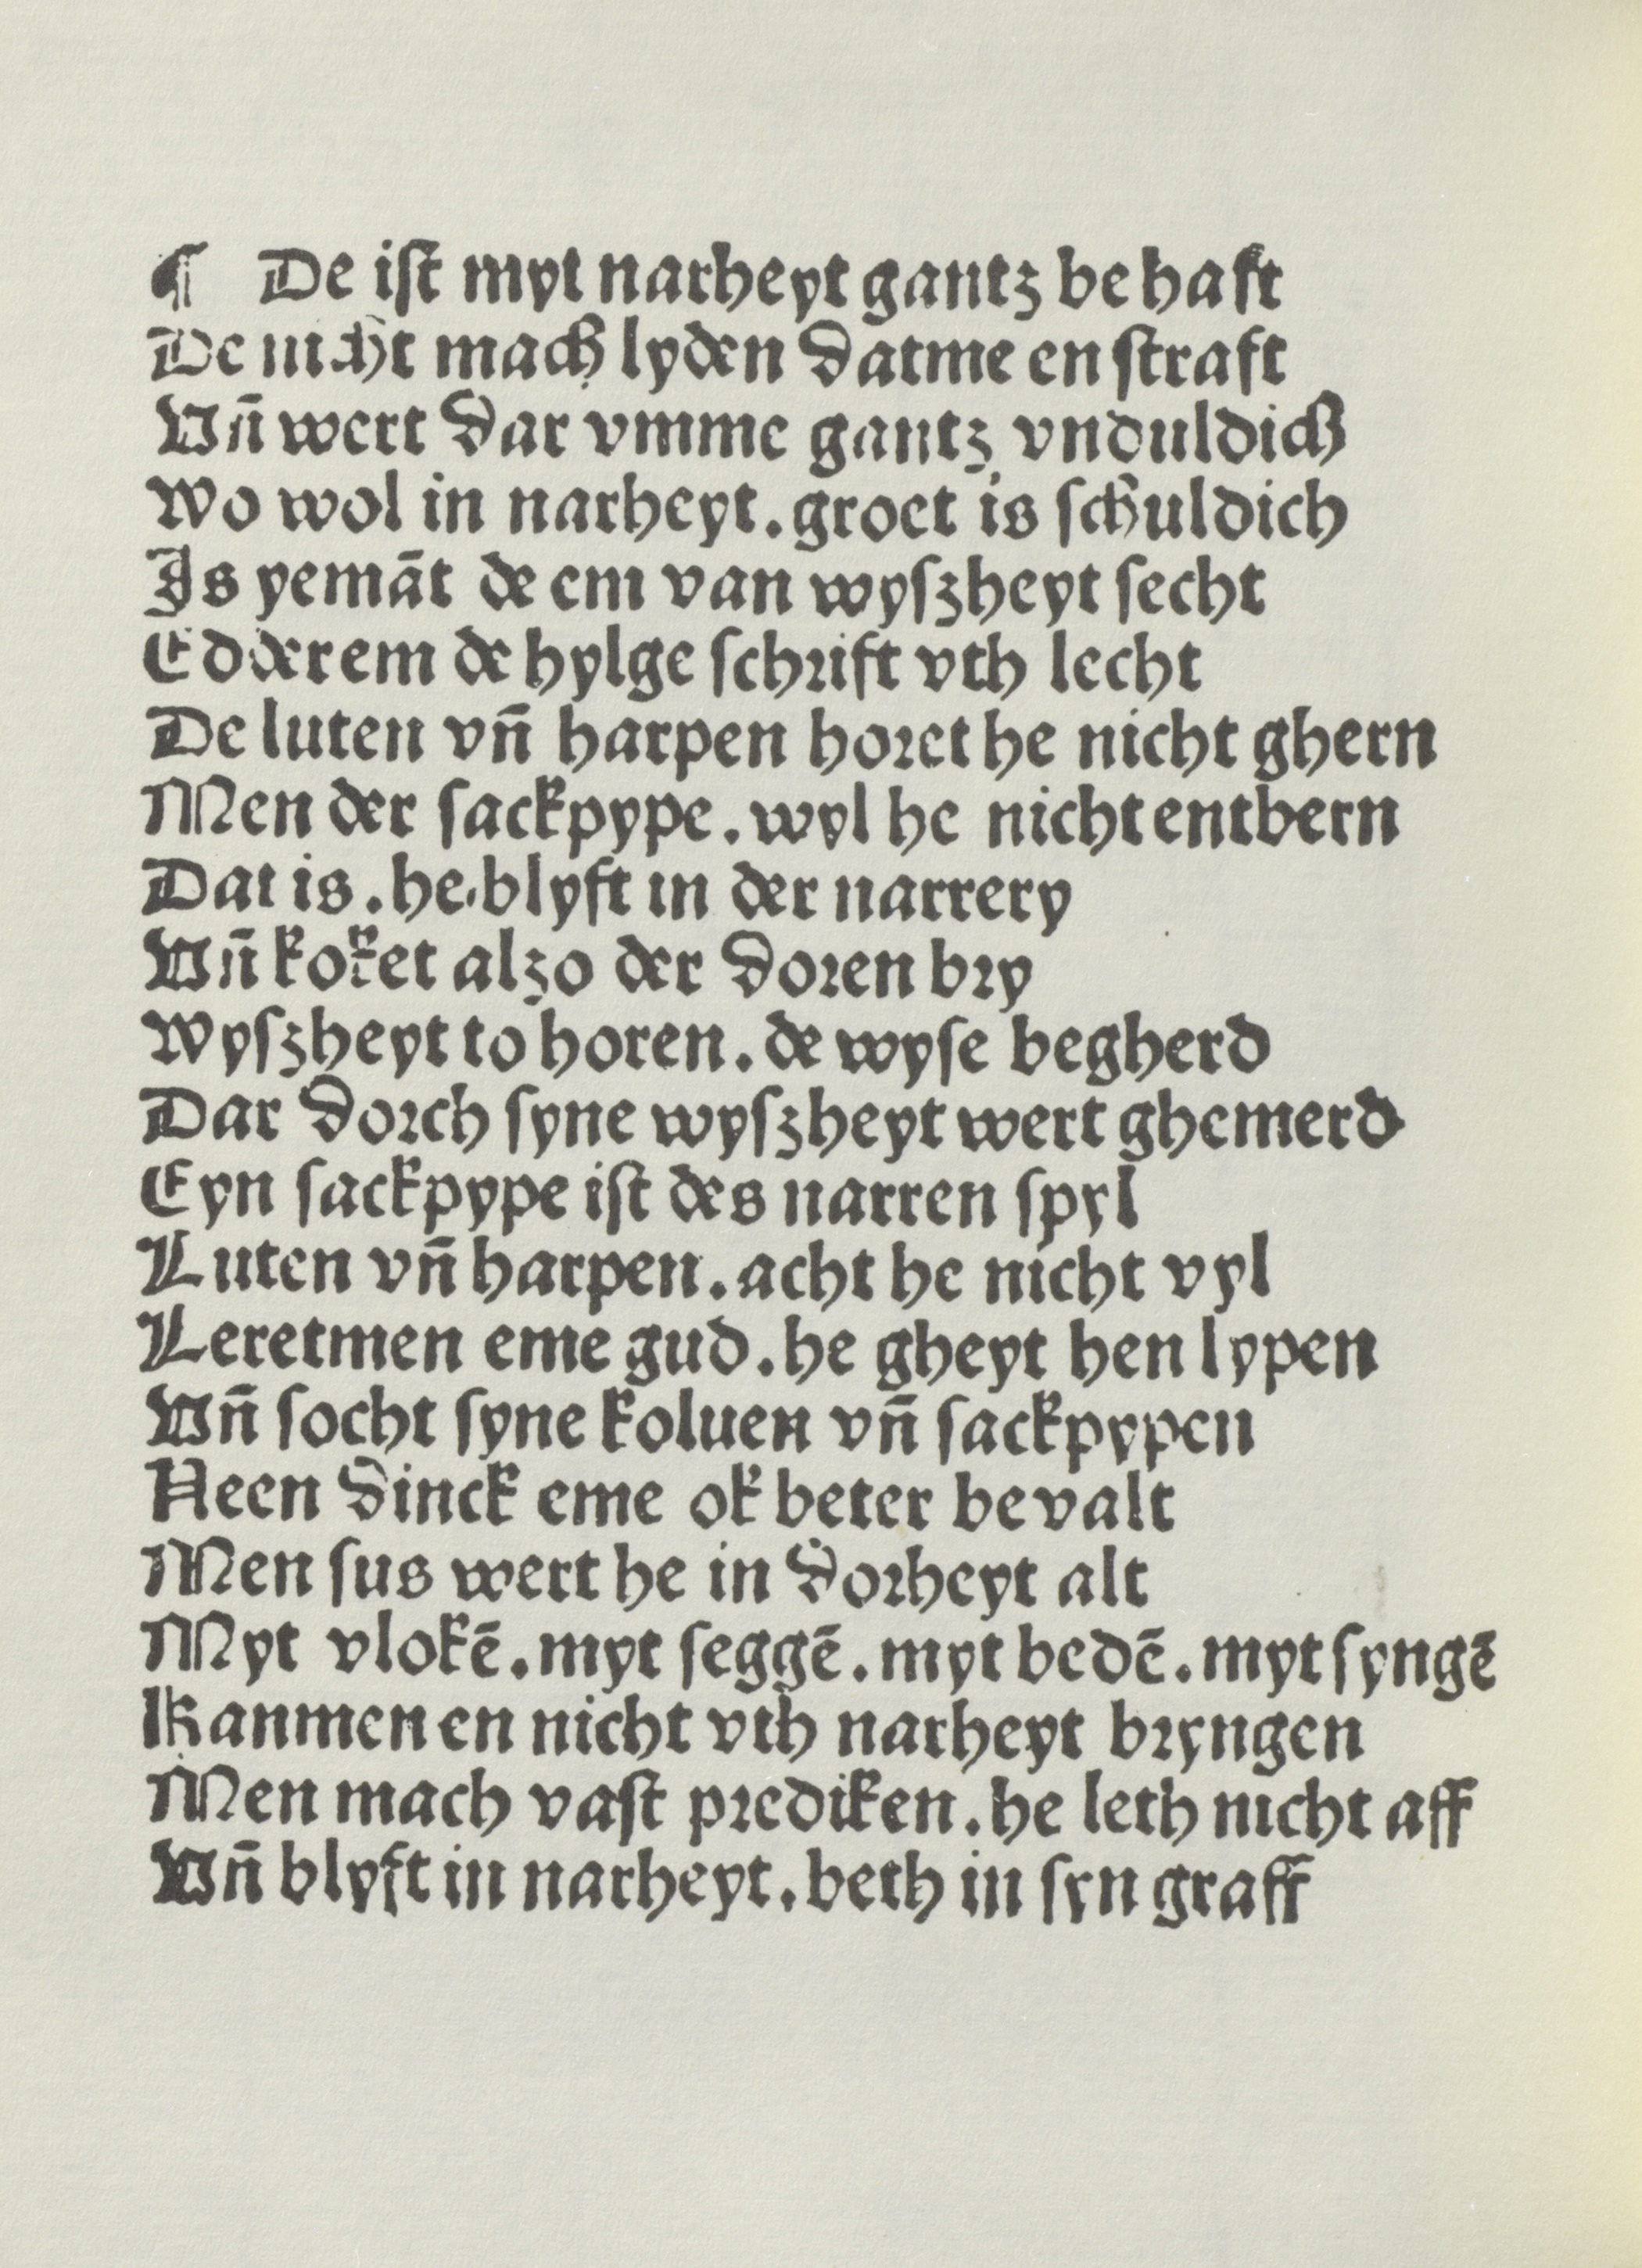 ¶ De iſt myt narheyt gantz behaft
De nicht mach lyden datme en ſtraft
Vn̄ wert dar vmme gantz vnduldich
Wo wol in narheyt. groet is ſchuldich
Is yemāt de em van wyſzheyt ſecht
Edder em de hylge ſchrift vth lecht
De luten vn̄ harpen horet he nicht ghern
Men der ſackpype. wyl he nicht entbern
Dat is. he blyft in der narrery
Vn̄ koket alzo der doren bry
Wyſzheyt to horen. de wyſe begherd
Dar dorch ſyne wyſzheyt wert ghemerd
Eyn ſackpype iſt des narren ſpyl
Luten vn̄ harpen. acht he nicht vyl
Leretmen eme gud. he gheyt hen lypen
Vn̄ ſocht ſyne koluen vn̄ ſackpypen
Neen dinck eme ok beter bevalt
Men ſus wert he in dorheyt alt
Myt vlokē. myt ſeggē. myt bedē. myt ſyngē
Kanmen en nicht vth narheyt bryngen
Men mach vaſt prediken. he leth nicht aff
Vn̄ blyft in narheyt. beth in ſyn graff